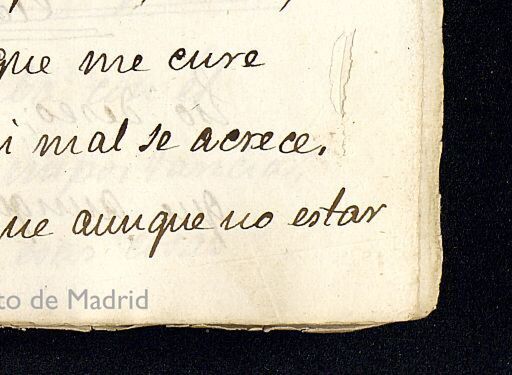 que me cure
i mal se acrece.
ue aunque no estar
to de Madrid